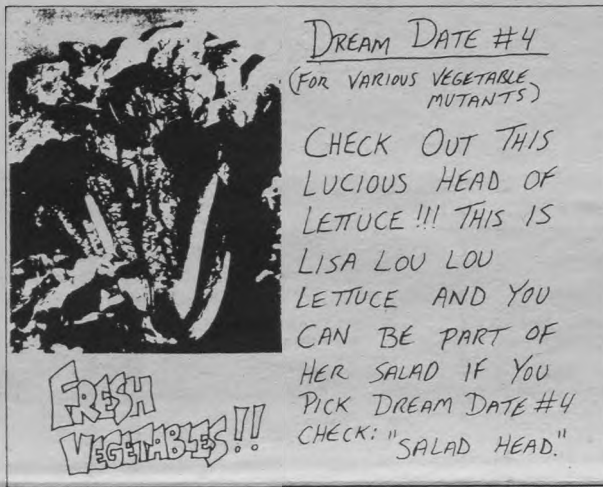 DREAM DATE #4
(FOR VARIOUS VEGETABLE
MUTANTS)
CHECK OUT THIS
LUCIOUS HEAD OF
LETTUCE!!! THIS IS
LISA LOU LOU
LETTUCE AND YOU
CAN BE PART OF
HER SALAD IF YOU
PICK DREAM DATE #4
CHECK: "SALAD HEAD."
FRESH
VEGETABLES!!